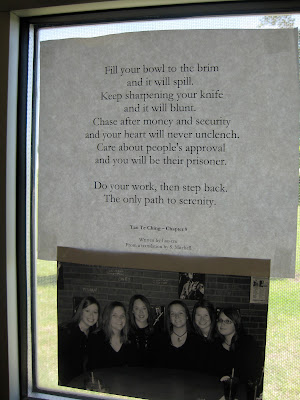 Fill your bowl to the brim
and it will spill.
Keep sharpening your knife
and it will blunt.
Chase after money and security
and your heart will never unclench.
Care about people's approval
and you will be their prisoner.
Do your work, then step back.
The only path to serenity.
Tao Te Ching – Chapter 9
Written by
translation by S. Mitchell